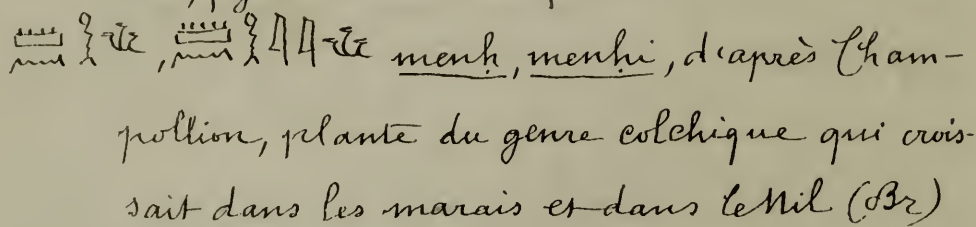 𓏠𓈖𓎛𓆰, 𓏠𓈖𓎛𓇋𓇋𓆰 menḥ, menḥi, d'après Cham-
pollion, plante du genre colchique qui crois-
sait dans les marais et dans le Nil (Br)